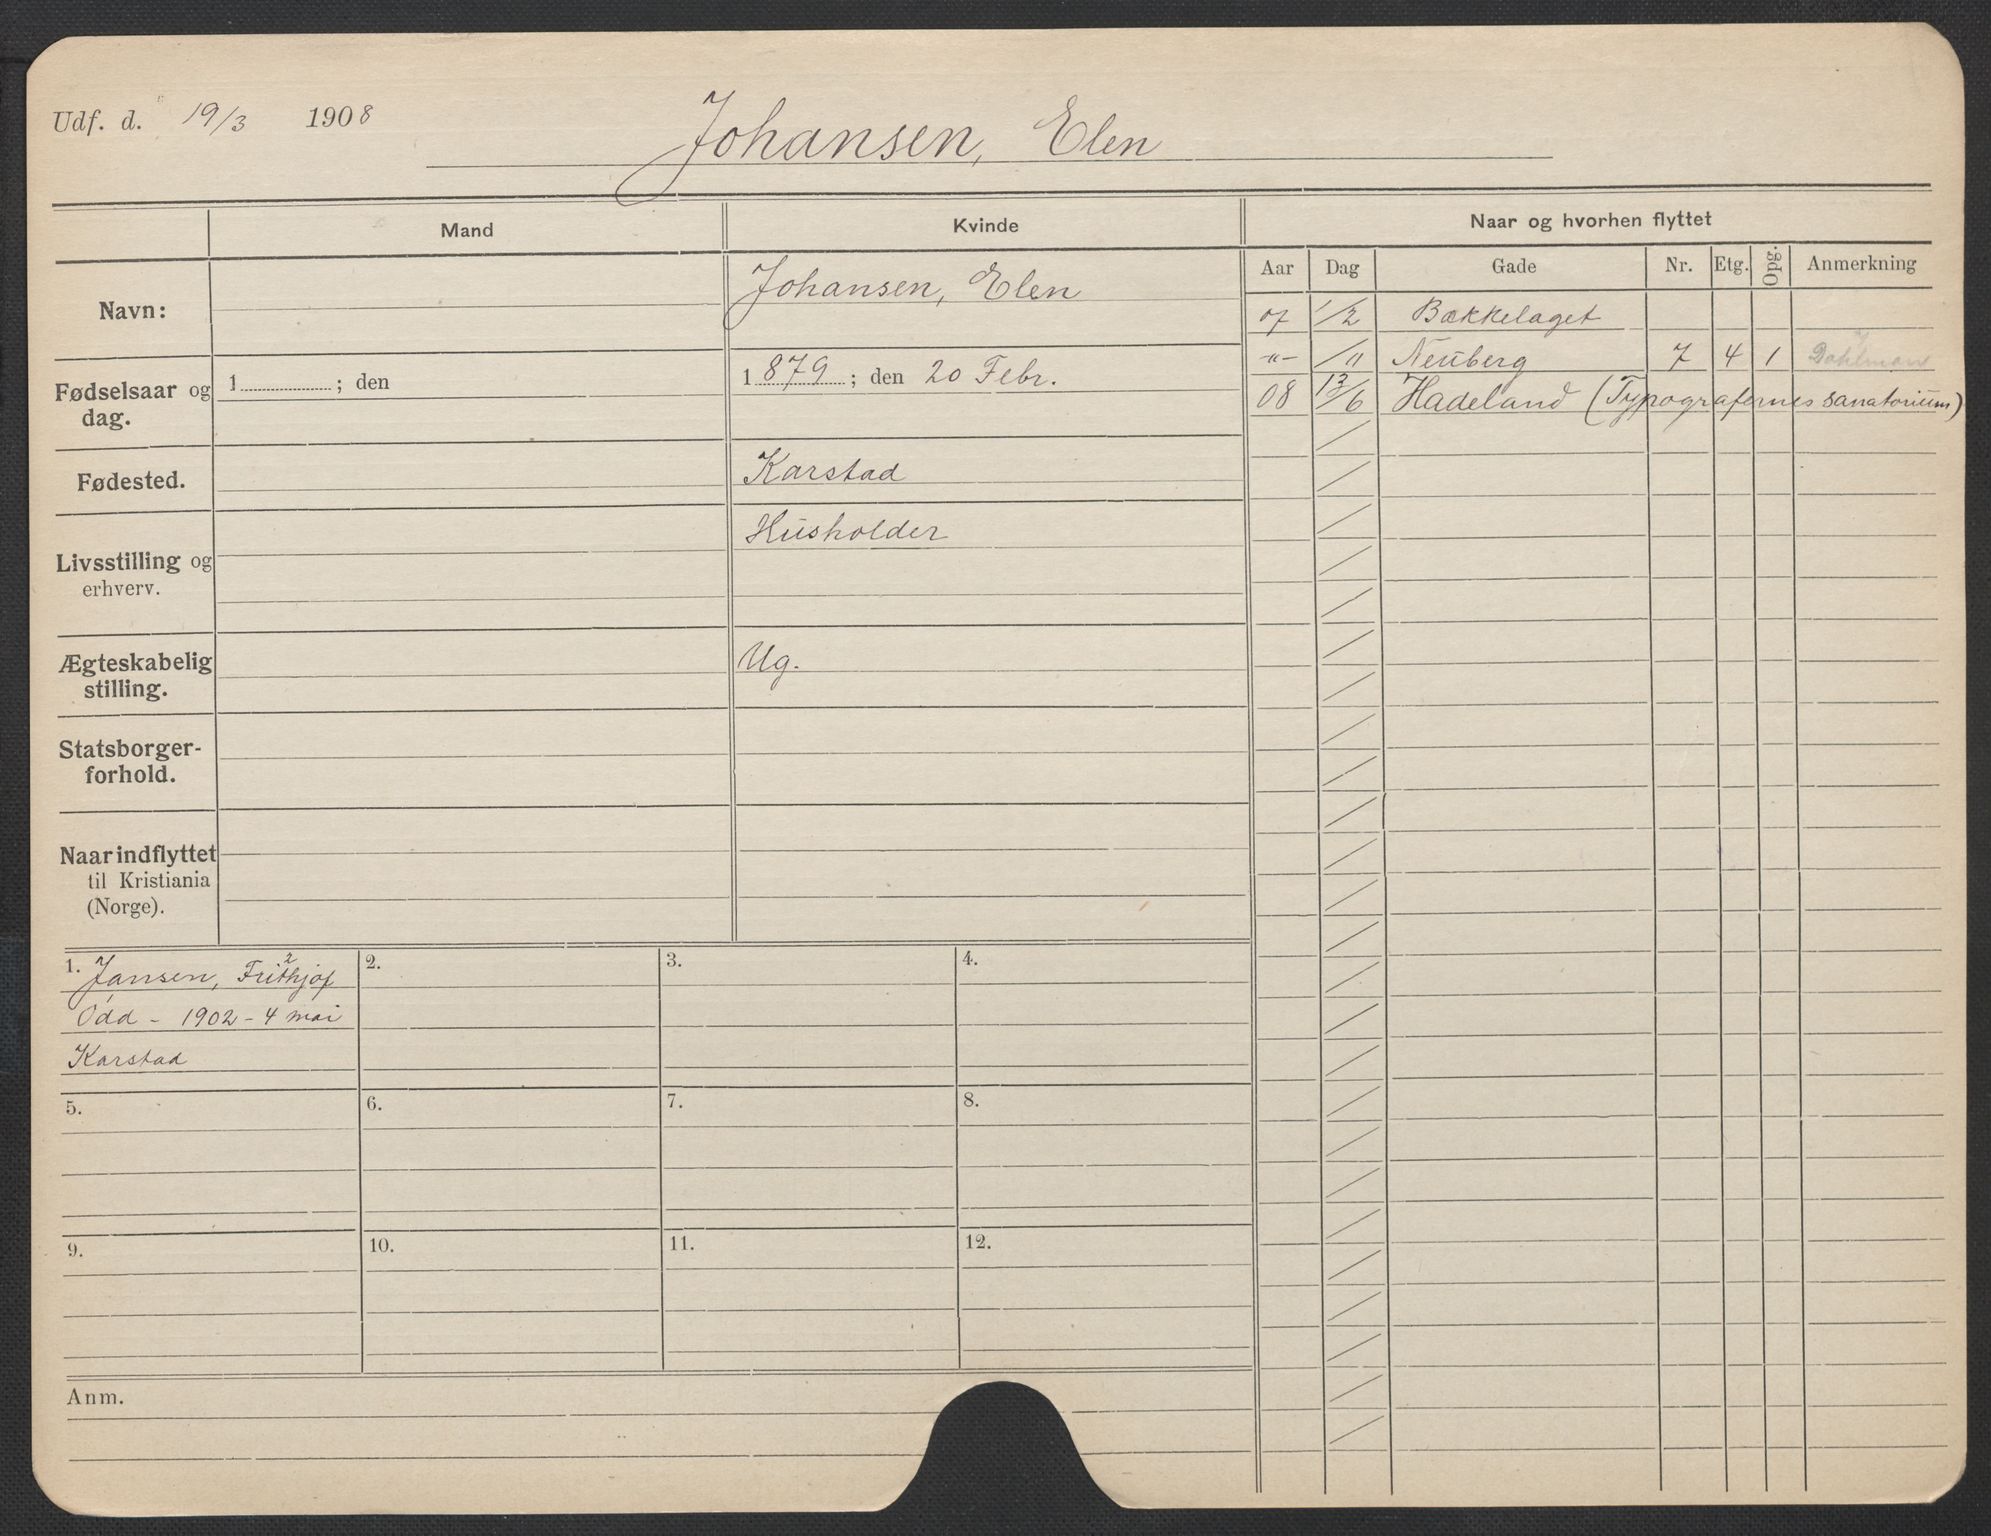 Udf. d. 19/3 1908
Johansen, Elen
Mand
Kvinde
Naar og hvorhen flyttet
Aar Dag Gade Nr. Etg. Opg. Anmerkning
Navn:
Johansen, Elen
07 1/2 Bækkelaget
-"- /11 Neuberg 7 4 1 Dahlman
08 13/6 Hadeland (Typografernes sanatorium)
Fødselsaar og
dag.
1 ; den
1879 ; den 20 Febr.
Fødested.
Karstad
Livsstilling og
erhverv.
Husholder
Ægteskabelig
stilling.
Ug.
Statsborger-
forhold.
Naar indflyttet
til Kristiania
(Norge).
1. Jansen, Frithjof 2
Odd - 1902 - 4 mai
Karstad
2.
3.
4.
5.
6.
7.
8.
9.
10.
11.
12.
Anm.